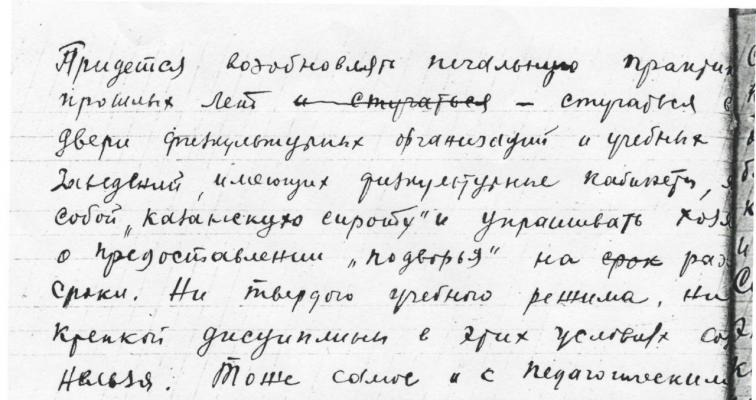 Придется возобновлять печальную практик
прошлых лет ~~и стучаться~~ – стучаться в
двери физкультурных организаций и учебных
заведений, имеющих физкультурные кабинеты,
собой „казанскую сироту" и упрашивать хозя
о предоставлении „подворья" на ~~срок~~ раз
сроки. Ни твердого учебного режима, ни
крепкой дисциплины в этих условиях соз
нельзя. Тоже самое и с педагогическим